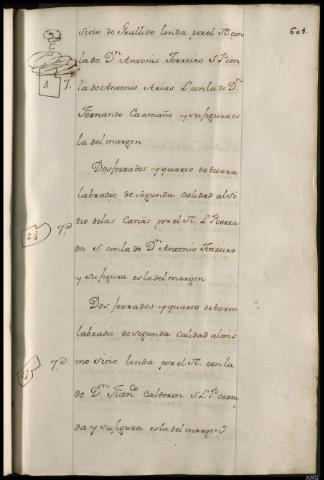 601.
sitio de Grallide linda por el N. con
la de Dn. Antonio Ferreiro S. P. con
la de Antonio Arias L. con la de Dn.
Fernando Caamaño y su figura es
la del margen
7.
Dos ferrados y quarto de terra
labradio de segunda calidad al si
tio de las Canas por el N. L. P. cerra
7.a
2 1/4
da S. con la de Dn. Antonio Ferreiro
y su figura es la del margen
Dos ferrados y quarto de terra
labradio de segunda calidad al mis
mo sitio linda por el N. con la
7.a
2 1/4
de Dn. Franco. Calderon S. L. P. cerra
da y su figura es la del margen
ARG